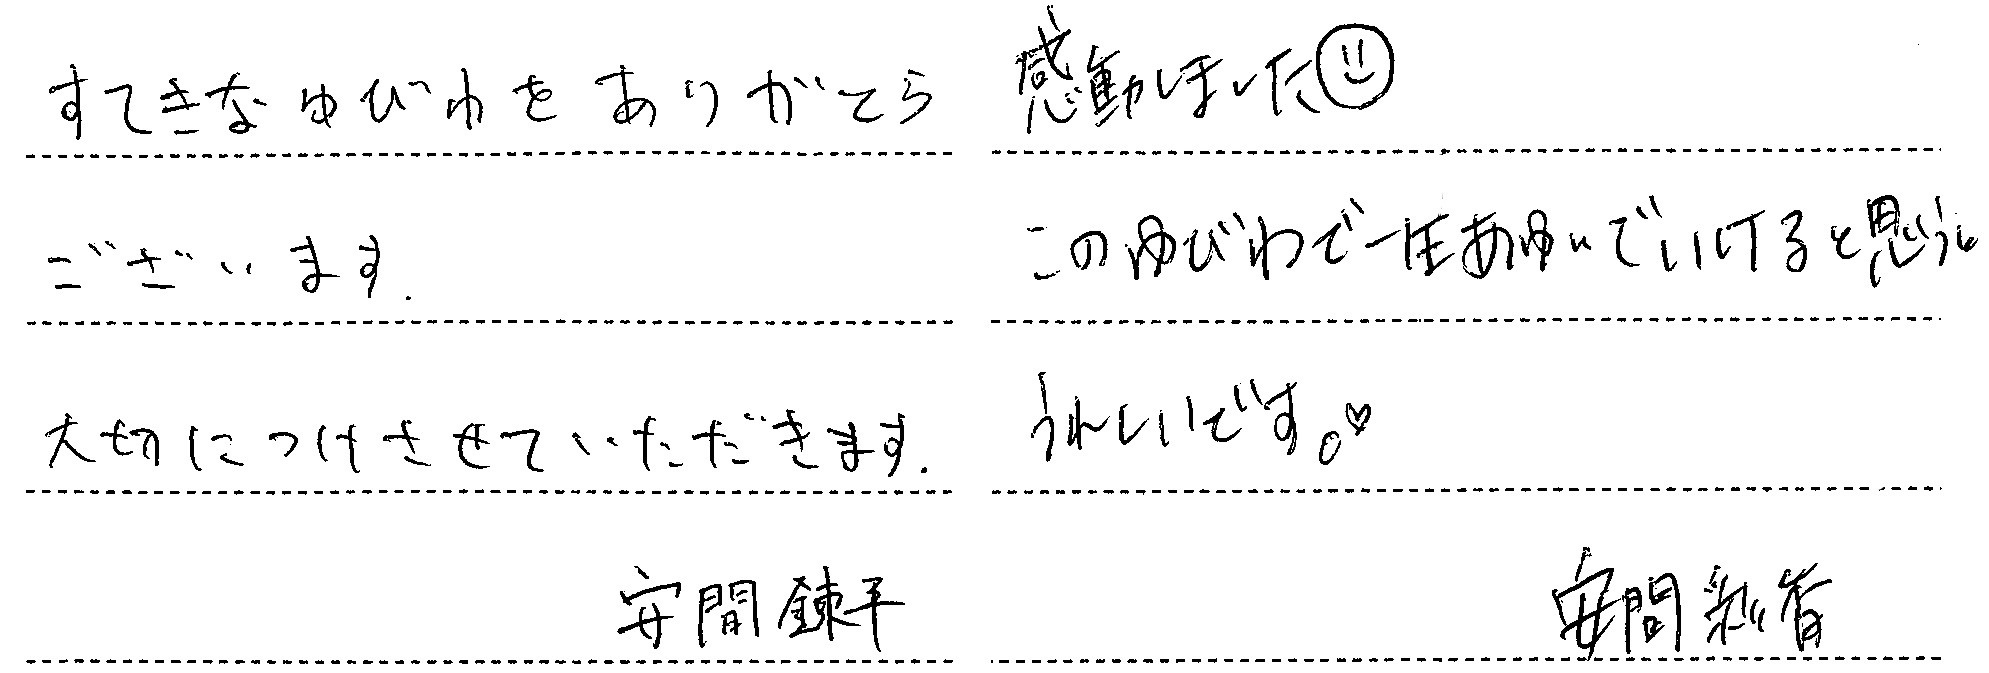 すてきなゆびわをありがとう
ございます.
大切につけさせていただきます.
安間錬平
感動しました
このゆびわで一生あゆいでいけると思うと
うれしいです。♡
安間彩香